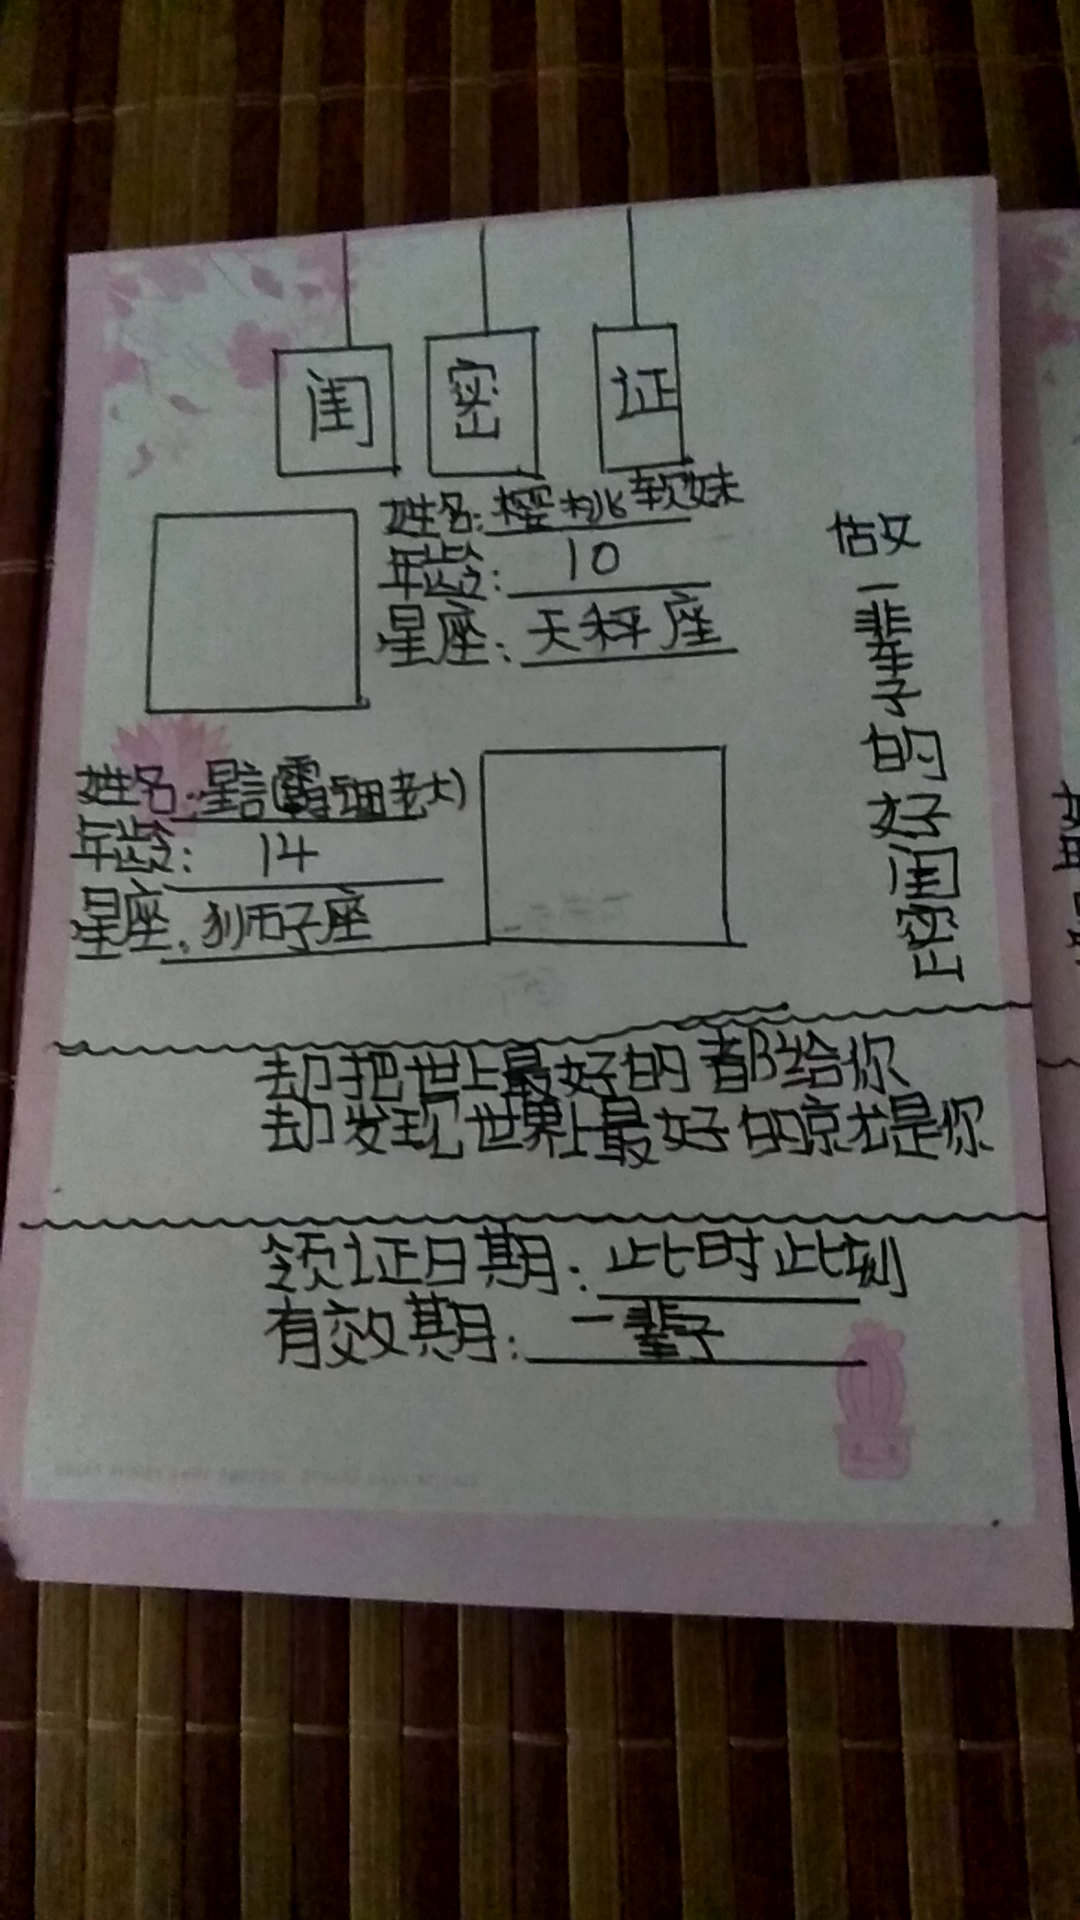 闺 密 证
姓名:樱桃软妹
年龄:10
星座:天秤座
做一辈子的好闺密
姓名:星言(霸钿老大)
年龄:14
星座:狮子座
却把世上最好的都给你
却发现世界上最好的就是你
领证日期:此时此刻
有效期:一辈子